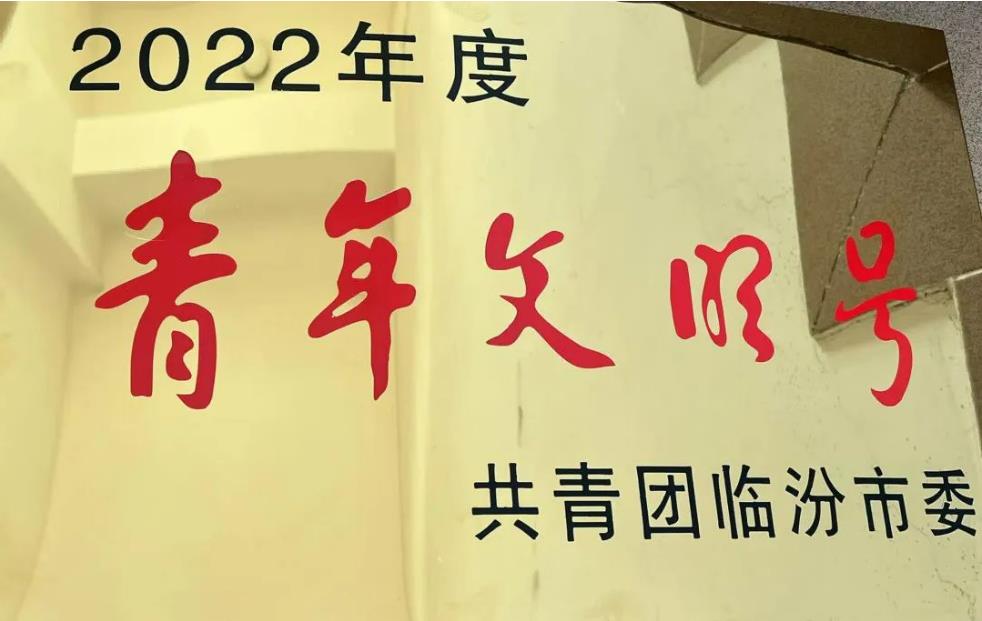 2022年度
青年文明号
共青团临汾市委